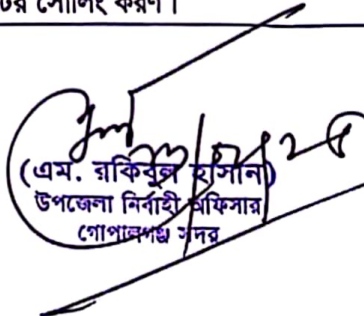 টর সোলিং করণ।
(এম. রকিবুল হাসান)
উপজেলা নির্বাহী অফিসার
গোপালগঞ্জ সদর